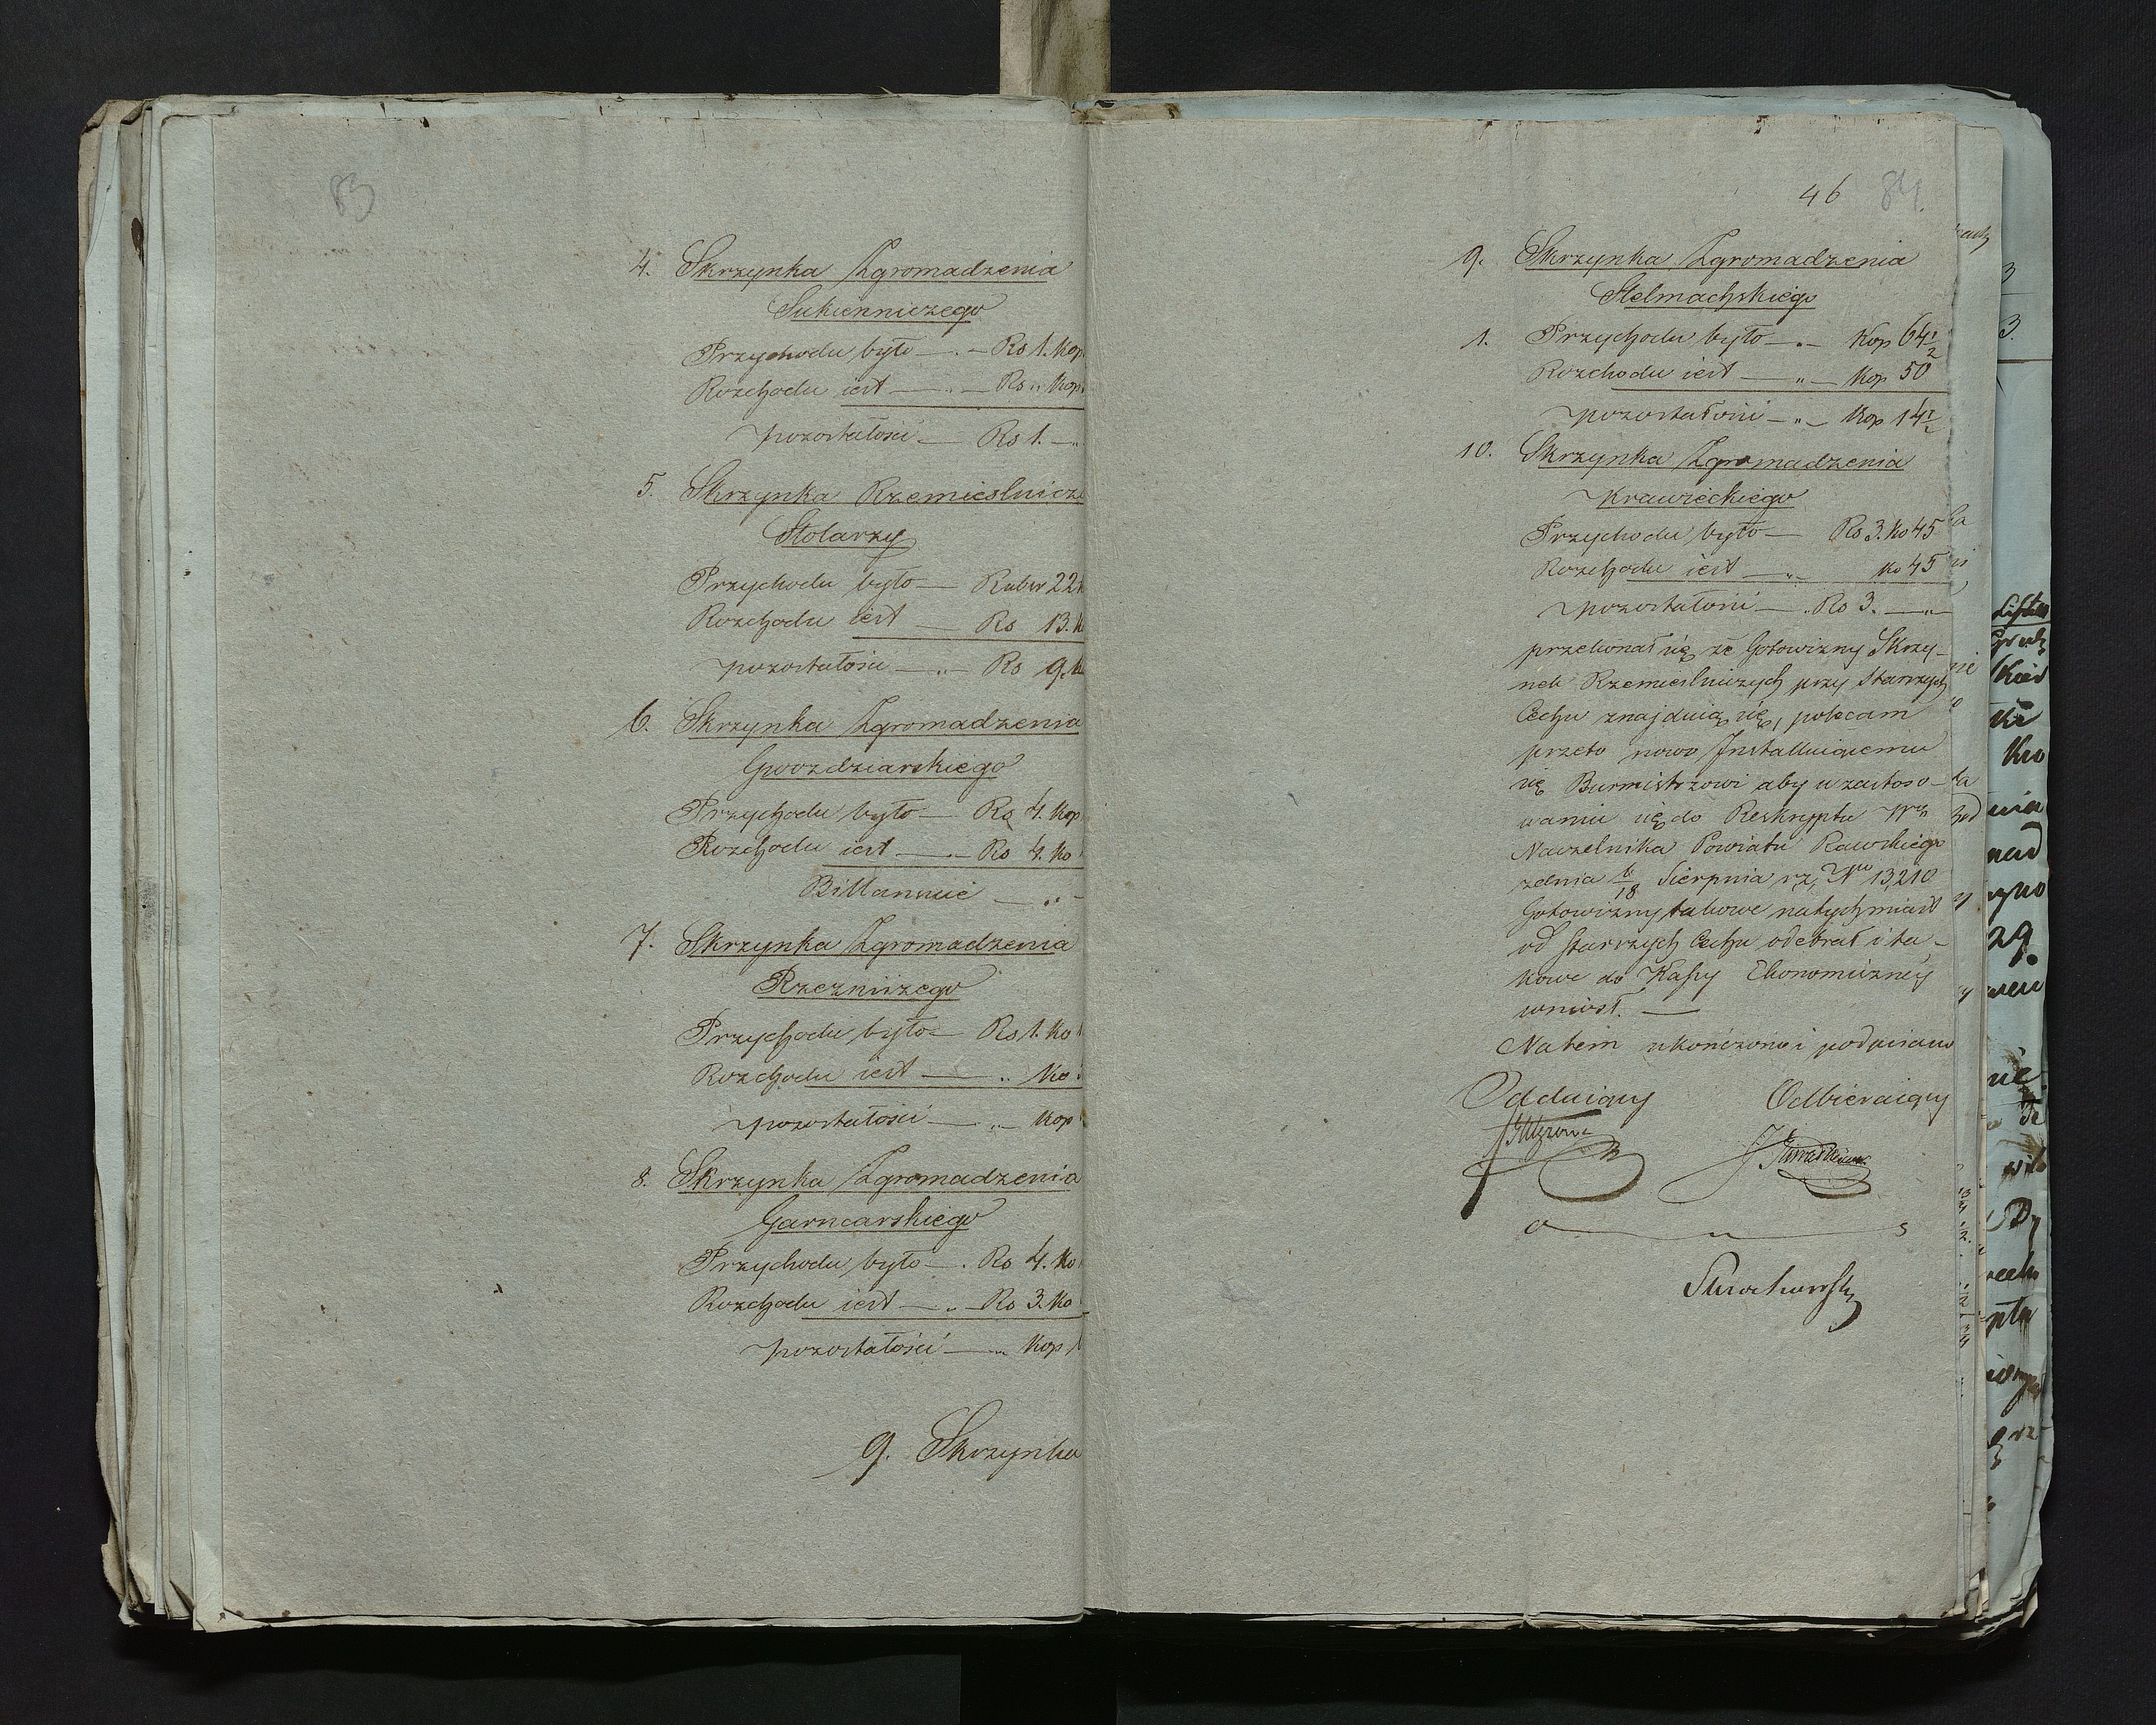 83
4. Skrzynka Zgromadzenia
Sukienniczego
Przychodu było — Rs 1. Kop
Rozchodu iest — „ — Rs „ Kop
pozostałości — Rs 1. — „
5. Skrzynka Rzemieslnicza
Stolarzy
Przychodu było — Rubsr 22
Rozchodu iest — Rs 13. K
pozostałości — „ — Rs 9. K
6. Skrzynka Zgromadzenia
Gwozdziarskiego
Przychodu było — Rs 4. Kop
Rozchodu iest — „ — Rs 4. Ko
Billansuie — „ —
7. Skrzynka Zgromadzenia
Rzezniczego
Przychodu było — Rs 1. Ko
Rozchodu iest — „ Ko
pozostałości — „ — Kop
8. Skrzynka Zgromadzenia
Garncarskiego
Przychodu było — . Rs 4. Ko
Rozchodu iest — „ — Rs 3. Ko
pozostałości — „ Kop
9. Skrzynka
46 84.
9. Skrzynka Zgromadzenia
Stelmachskiego
1. Przychodu było — „ — Kop 64 1/2
Rozchodu iest — „ — Kop 50
pozostałości — „ — Kop 14 1/2
10. Skrzynka Zgromadzenia
Krawieckiego
Przychodu było — Rs 3. Ko 45
Rozchodu iest — „ — Ko 45
pozostałości — „ Rs 3. — „ —
przekonał się że Gotowizny Skrzy-
nek Rzemieslniczych przy Starszych
Cechu znajduią się, polecam
przeto nowo Installuiącemu
się Burmistrzowi aby w zastoso-
waniu się do Reskryptu
Naczelnika Powiatu Rawskiego
z dnia 6/18 Sierpnia r. z. No 13,210
Gotowizny takowe natychmiast
od starszych Cechu odebrał i ta-
kowe do Kassy Ekonomiczney
wniosł. —
Natem ukończono i podpisano
Oddaiący Odbieraiący